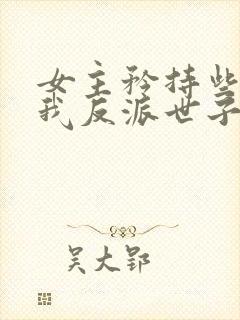 女主矜持些
我反派世子
吴大郢